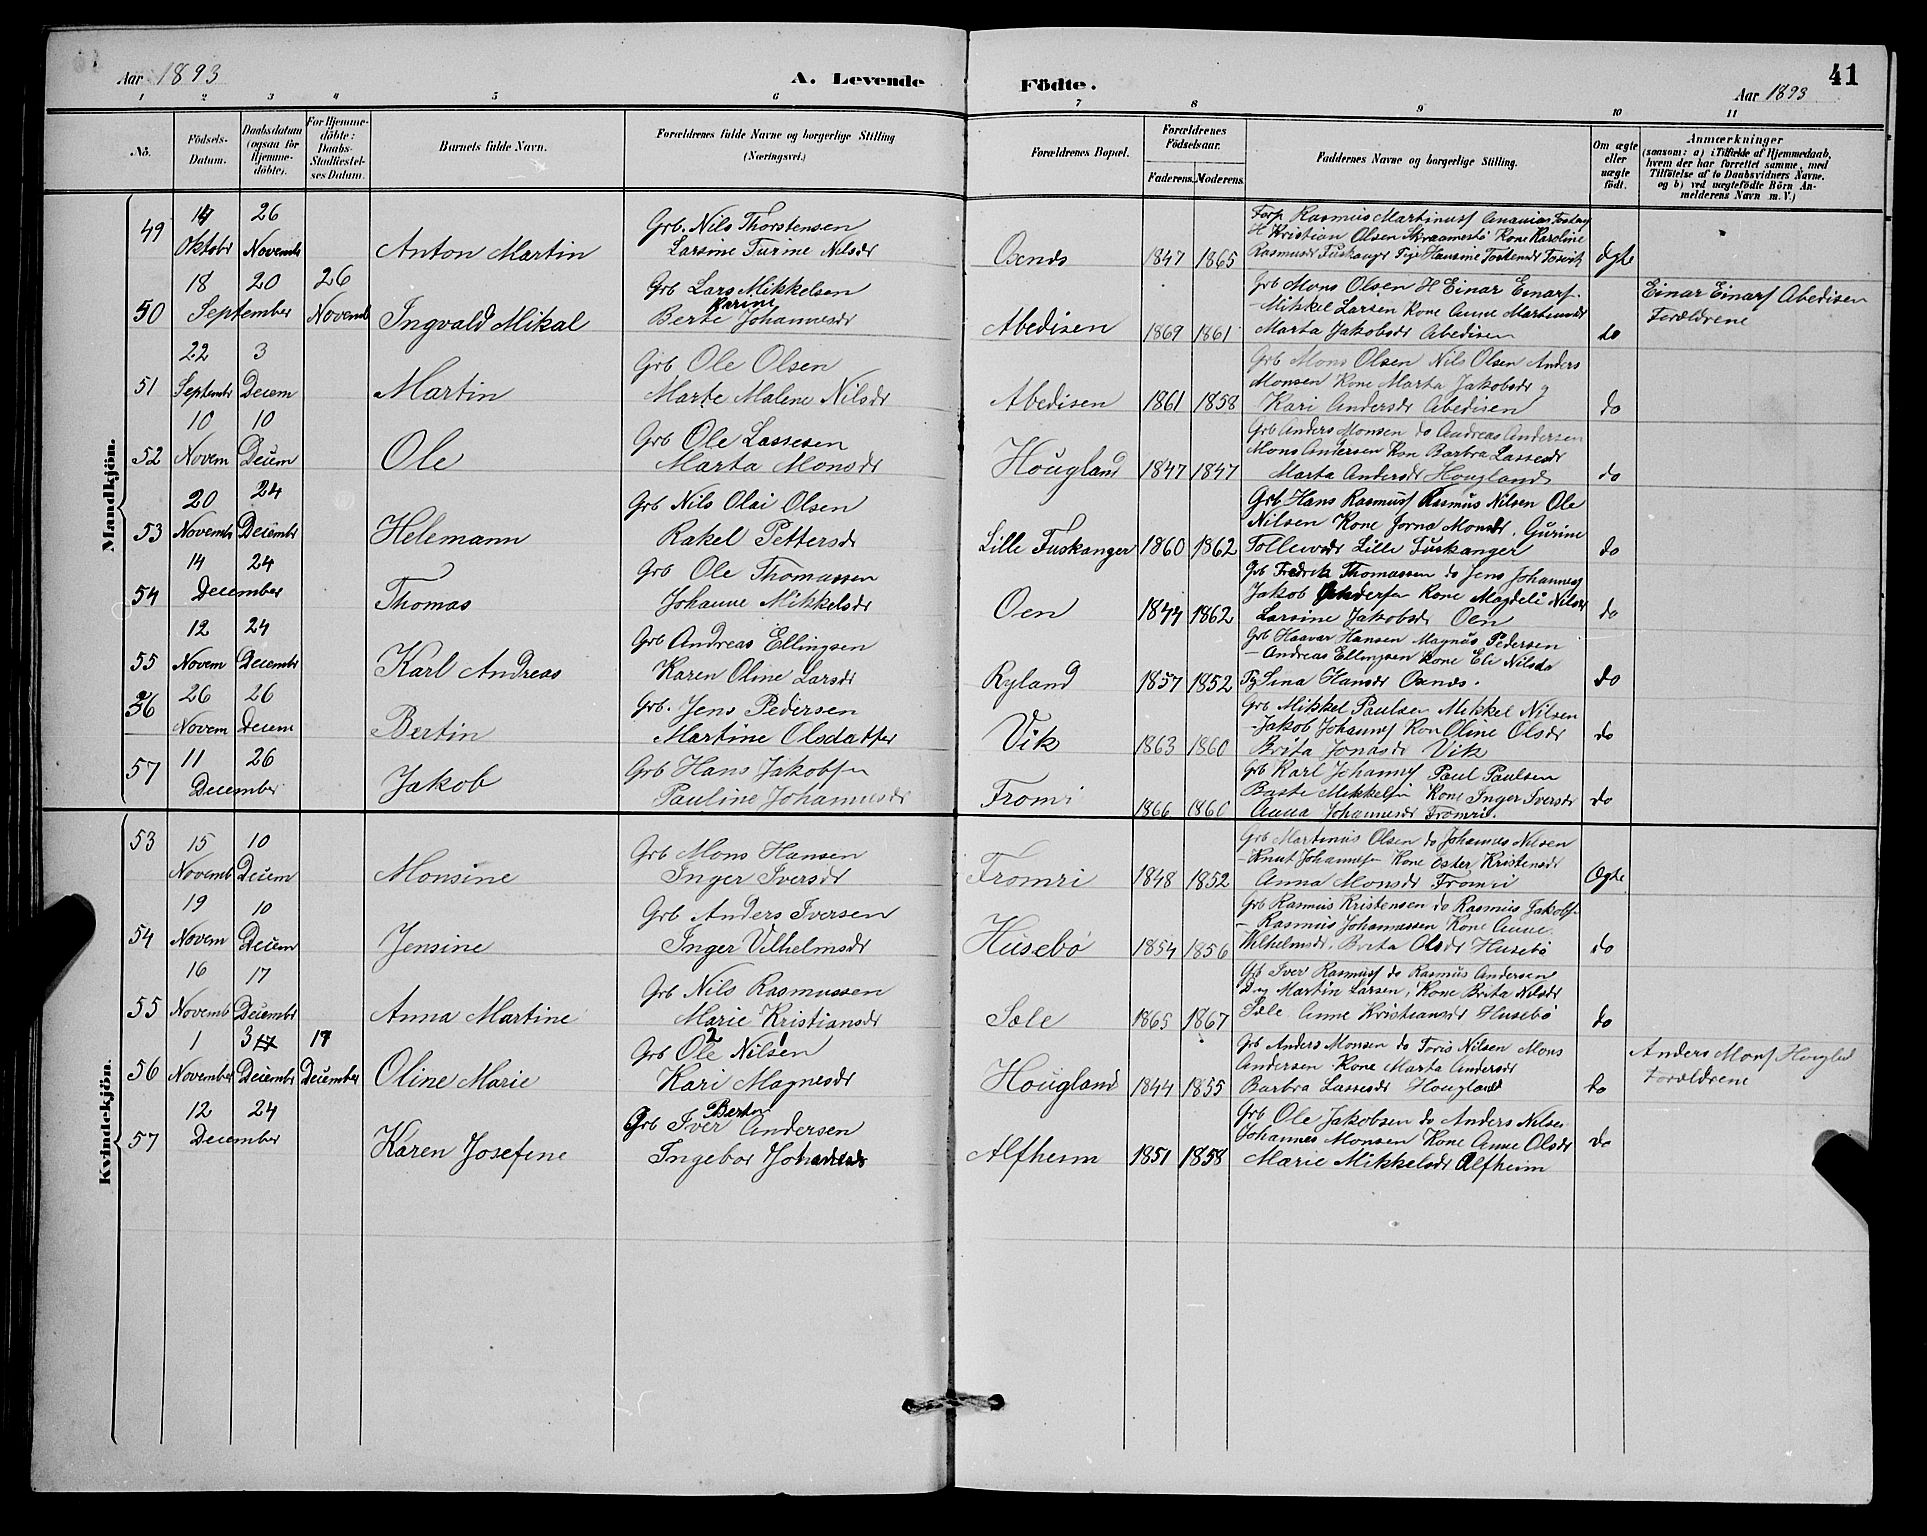 Aar 1893
A. Levende
Födte.
Aar 1893
41
1 2 3 4 5 6 7 8 9 10 11
No.
Födsels-Datum.
Daabsdatum (ogsaa for Hjemme-döbte).
For Hjemme-döbte: Daabs-Stadfæstel-ses Datum.
Barnets fulde Navn.
Forældrenes fulde Navne og borgerlige Stilling (Næringsvei.)
Forældrenes Bopæl.
Forældrenes Födselsaar.
Faderens. Moderens.
Faddernes Navne og borgerlige Stilling.
Om ægte eller uægte født.
Anmærkninger
(saasom: a) i Tilfælde af Hjemmedaab, hvem der har forrettet samme, med Tilföielse af to Daabsvidners Navne. og b) ved uægtefödte Börn An-melderens Navn m. V.)
Mandkjön.
49 14 Oktobr 26 Novembr Anton Martin Grb. Nils Thorstensen
Larsine Turine Nilsdr Osends 1847 1865 Rasmus Martinus
Kristian Olsen Kone Karoline
Ægte
50 18 September 20 26 Novemb Ingvald Mikal Grb Lars Mikkelsen
Berte Karine Johannesdr Abedisen 1869 1861 Grb Mons Olsen H Einar Einarf
Mikkel Larsen Kone Anne
Marta Jakobsdr Abedisen do Einar Einarf Abedisen
Forældrene
51 22 Septembr 3 Decem Martin Grb Ole Olsen
Marte Malene Nilsdr Abedisen 1861 1858 Grb Mons Olsen Nils Olsen Anders
Monsen Kone Marta Jakobsdr
Kari Andersdr Abedisen do
52 10 Novem 10 Decem Ole Grb Ole Lassesen
Marta Monsdr Hougland 1847 1847 Grb Anders Monsen do Andreas Andersen
Mons Andersen Kon Barbra Lassesdr
Marta Andersdr Hougland do
53 20 Novembr 24 Decembr Helemann Grb Nils Olai Olsen
Rakel Pettersdr Lille Fuskanger 1860 1862 Grb Hans Rasmusf Rasmus Nilsen Ole
Nilsen Kone Jorna Monsdr. Gurine
Lille Fuskanger do
54 14 December 24 Thomas Grb Ole Thomassen
Johanne Mikkelsdr Oen 1844 1862 Grb Fredrik Thomassen do Jens Johannesf
Jakob Kone Magdeli Nilsdr
Larsine Jakobsdr Oen do
55 12 Novem 24 Decembr Karl Andreas Grb Andreas Ellingsen
Karen Oline Larsdr Ryland 1857 1852 Grb Haavar Hansen Magnus Pedersen
Andreas Ellingsen Kone Eli Nilsdr
Sina Hansdr Osends. do
56 26 Novem 26 Decem Bertin Grb. Jens Pedersen
Martine Olsdatter Vik 1863 1860 Grb Mikkel Paulsen Mikkel Nilsen
Jakob Johannesf Kon Oline Olsdr
Brita Jonasdr Vik do
57 11 December 26 Jakob Grb Hans Jakobsen
Pauline Johannesdr Fromri 1866 1860 Grb Karl Johannesf Paul Paulsen
Kone Inger Iversdr
Anna Johannesdr Fromri. do
Kvindekjön.
53 15 Novemb 10 Decem Monsine Grb Mons Hansen
Inger Iversdr Fromri 1848 1852 Grb Martinus Olsen do Johannes Nilsen
Knut Kone Kristensdr
Anna Monsdr Fromri Ægte
54 19 Novem 10 Decem Jensine Grb Anders Iversen
Inger Vilhelmsdr Husebø 1854 1856 Grb Rasmus Kristensen do Rasmus Jakobf
Rasmus Johannessen Kone Anne
Vilhelmsdr. Brita Olsdr Husebø do
55 16 Novemb 17 Decembr Anna Martine Grb Nils Rasmussen
Marie Kristiansdr Sæle 1865 1867 Grb Iver Rasmusf do Rasmus Andersen
Martin Larsen, Kone Brita Nilsdr
Sæle Anne Kristiansdr Husebø do
56 1 November 3 Decembr 17 December Oline Marie Grb Ole Nilsen
Kari Magnesdr Hougland 1844 1855 Grb Anders Monsen do Nilsen Mons
Andersen Kone Marta Andersdr
Barbra Lassesdr Hougland do Anders Monf
Forældrene
57 12 December 24 Karen Josefine Grb Iver Andersen
Ingebor Alfheim 1851 1858 Grb Ole Jakobsen do Anders Nilsen
Johannes Monsen Kone Anne Olsdr
Marie Mikkelsdr Alfheim do